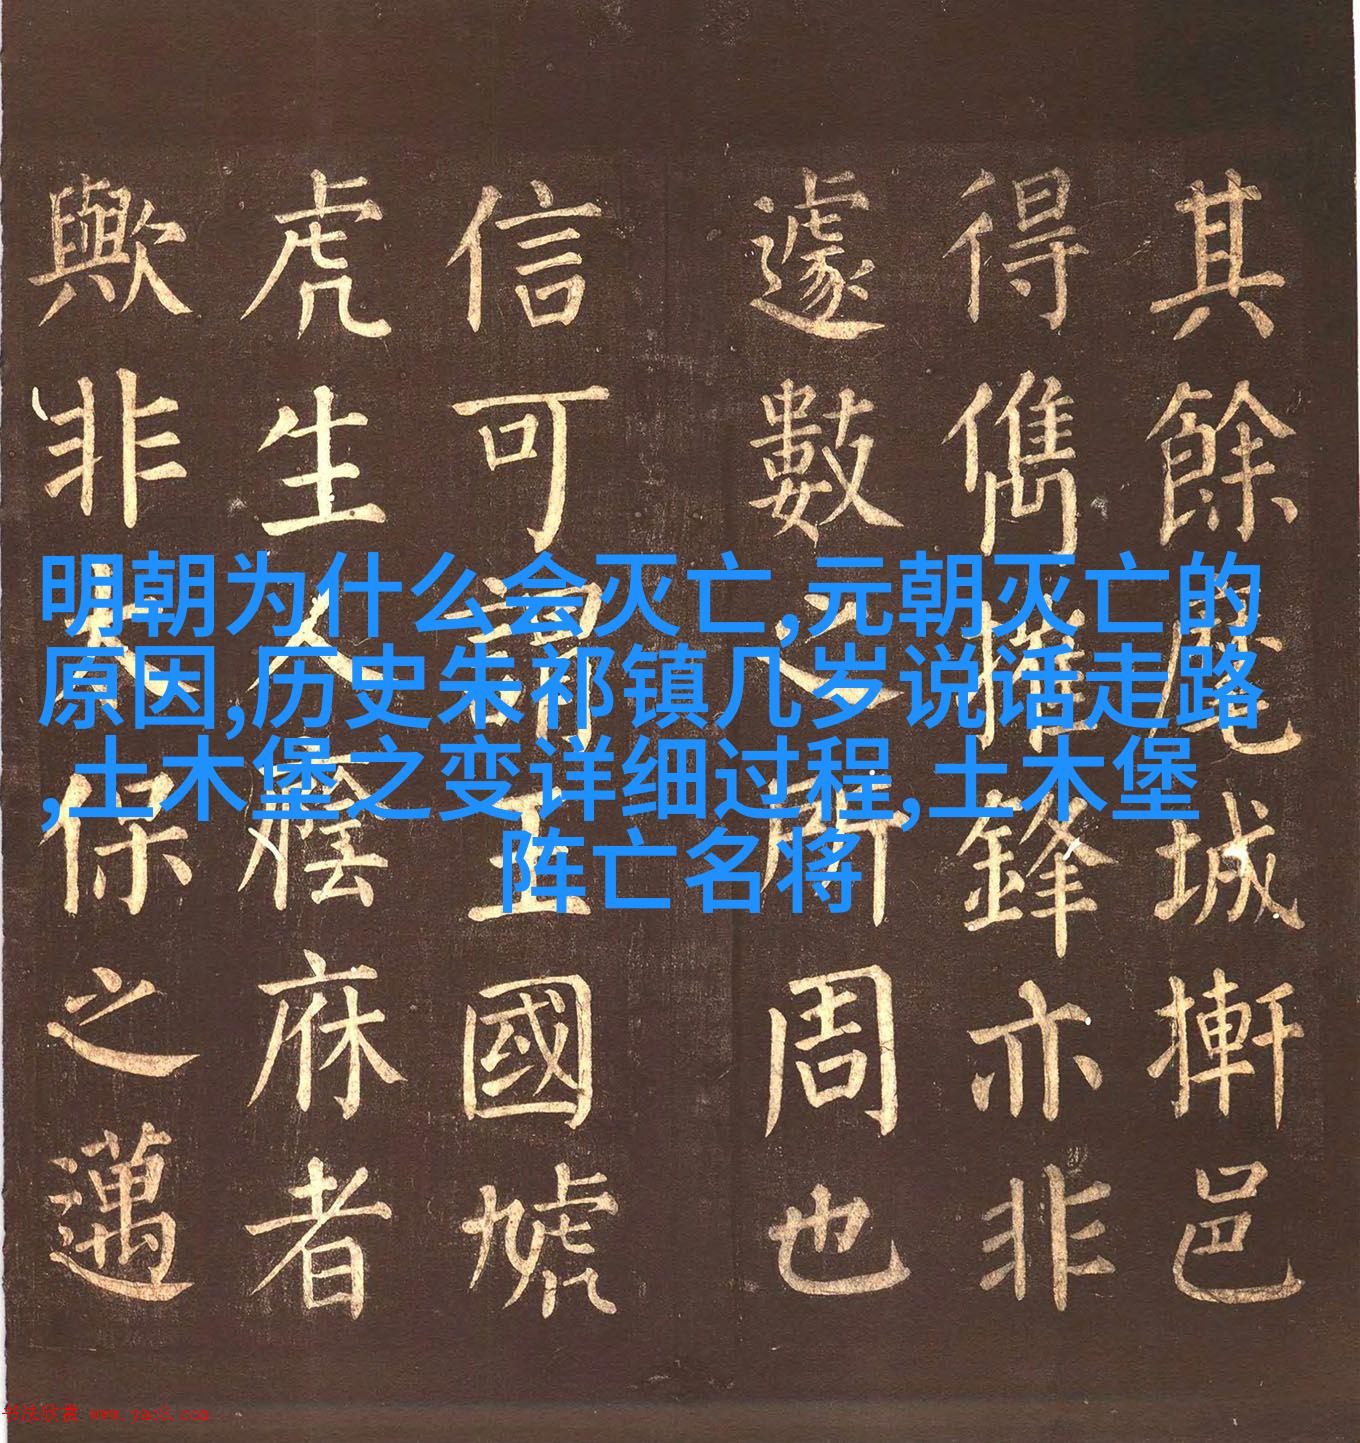 明朝为什么会灭亡,元朝灭亡的
原因,历史朱祁镇几岁说话走路
,土木堡之变详细过程,土木堡
阵亡名将
其餘麾城摲邑
得儁摧鋒亦非
遽數之所周也
信可謂王國虓
虎生人廕庥者
歟非太保之邁
书法欣赏 www.yac8.com